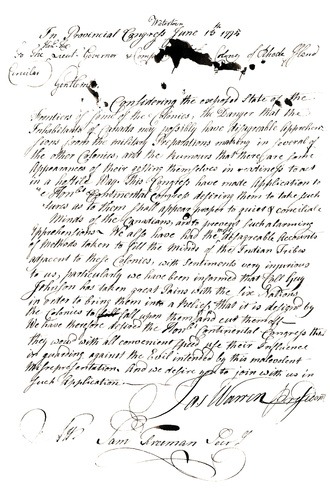 Watertown
In Provincial Congress June 1775
To the Lieut. Governor & Company Colony of Rhode Island
Circular
Gentlemen
Considering the exposed State of the
Frontiers of some of the Colonies, the Danger that the
Inhabitants of Canada may possibly have disagreable apprehen
sions from the military Preparations making in several of
the other Colonies, and the Rumours that there are some
Appearances of their getting themselves in readiness to act
in a hostile Way. This Congress have made Application to
Honble Continental Congress desiring them to take such
as to them shall appear proper to quiet & conciliate
Minds of the Canadians, and to prevent such alarming
Apprehensions. We also have had the disagreable Accounts
of Methods taken to fill the Minds of the Indian Tribes
adjacent to these Colonies, with Sentiments very injurious
to us; particularly we have been informed that Guy
Johnson has taken great Pains with the Six Nations
in order to bring them into a belief, that it is design'd by
the Colonies to fall upon them and cut them off
We have therefore desired the Honble Continental Congress that
they wou'd with all convenient speed use their Influence
in guarding against the Evil intended by this malevolent
Misrepresentation. And we desire you to join with us in
such Application.
Jas Warren Presidt
Att. Saml Freeman Secry